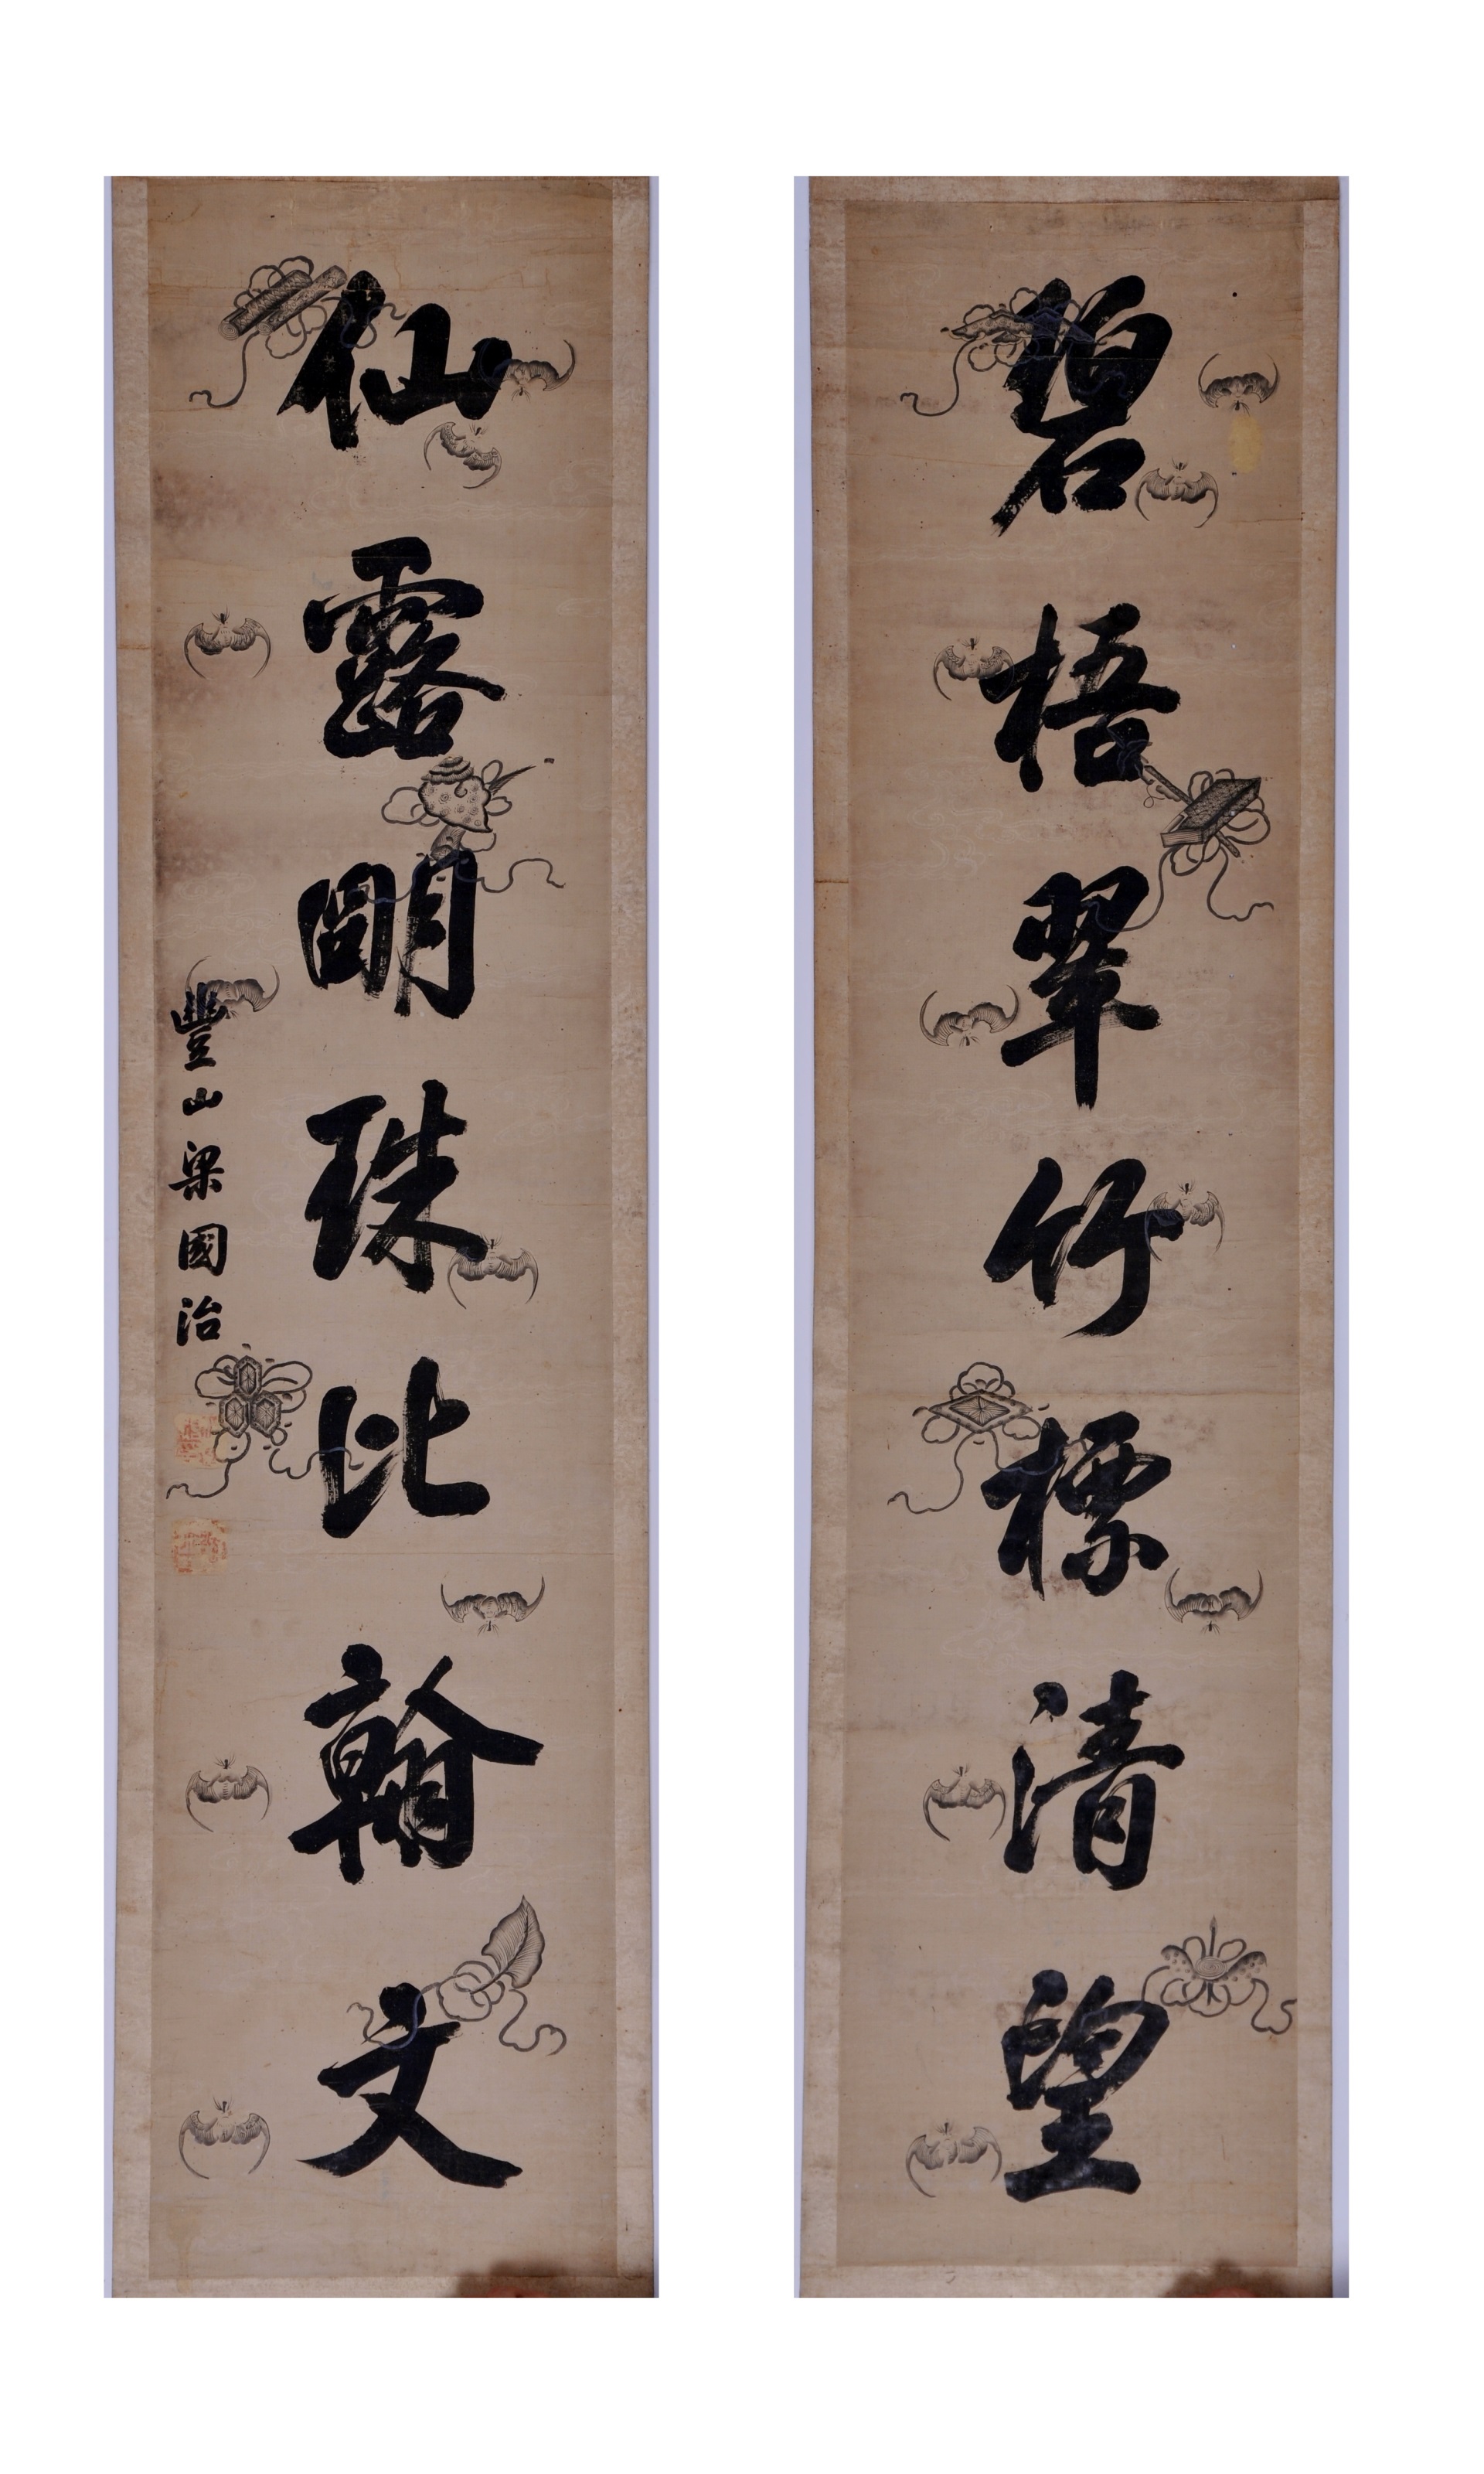 碧梧翠竹標清望
仙露明珠比翰文
豐山梁國治